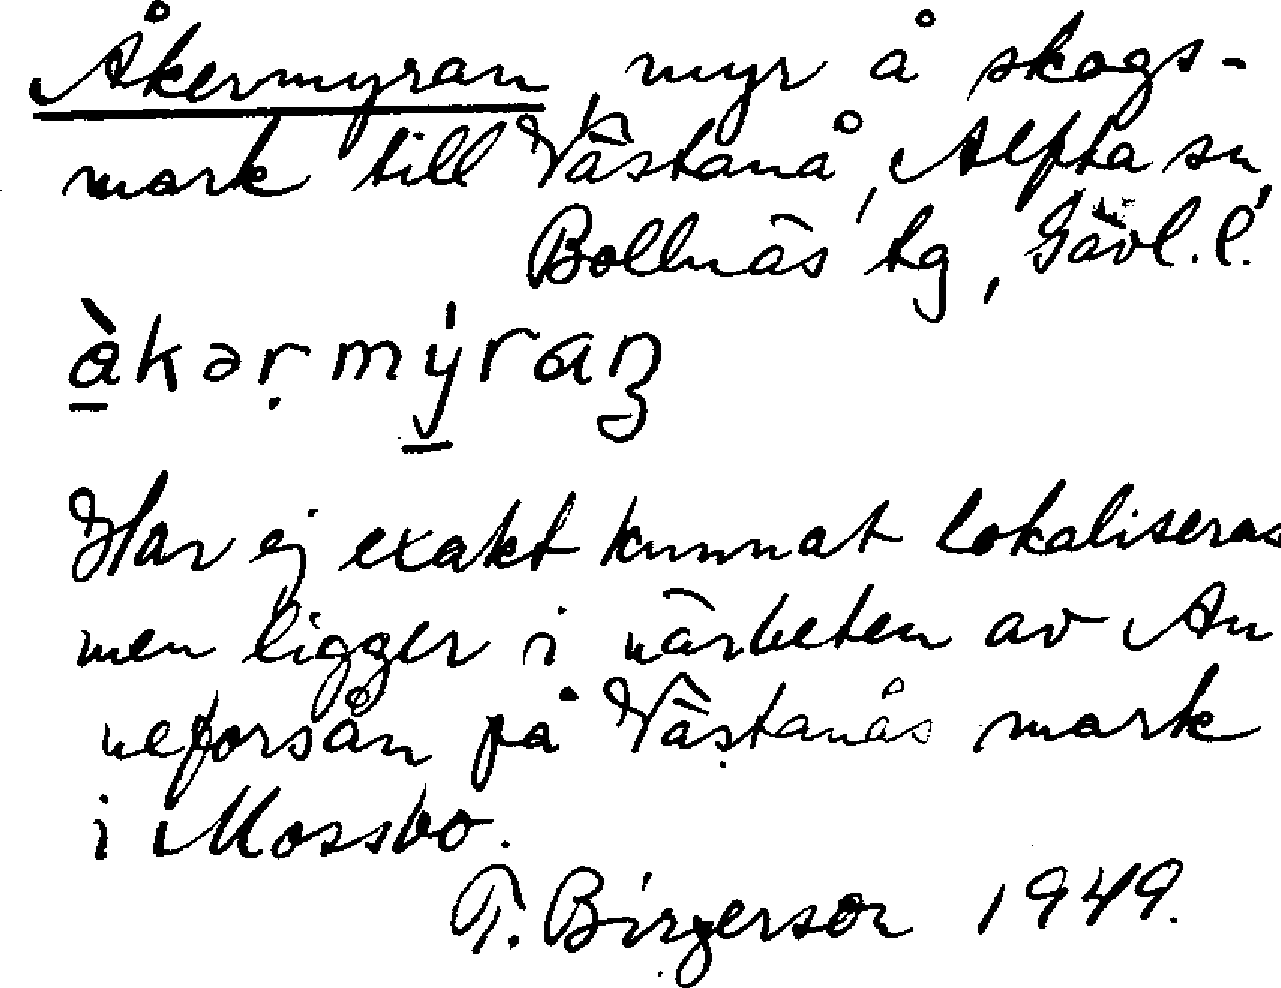 Åkermyran, myr å skogs-
mark till Västanå, Alfta sn,
Bollnäs tg, Gävl. l.
å̱̀kəṛmý̱raɲ
Har ej exakt kunnat lokaliseras
men ligger i närheten av An
neforsån på Västanås mark
i Mossbo.
T. Birgerson 1949.